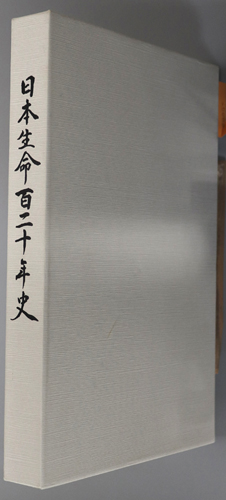 日本生命百二十年史